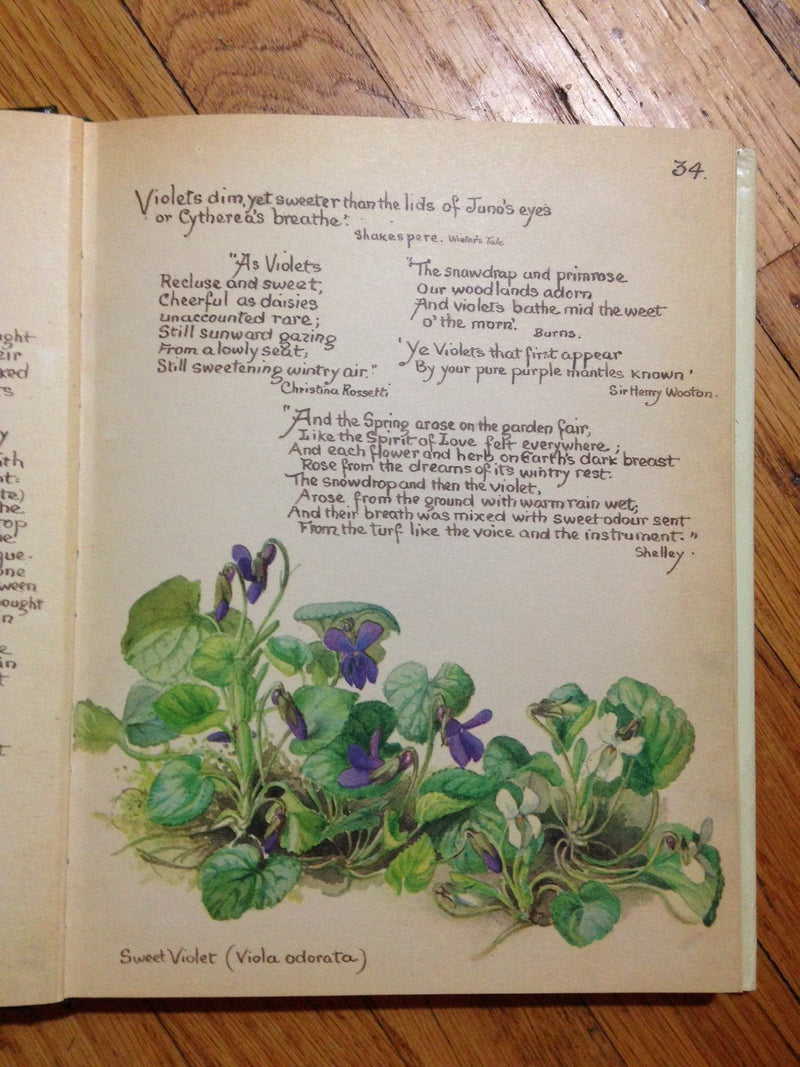 34.
Violets dim, yet sweeter than the lids of Juno's eyes
or Cytherea's breathe'.
Shakespere. Winter's Tale
"As Violets
Recluse and sweet,
Cheerful as daisies
unaccounted rare;
Still sunward gazing
From a lowly seat,
Still sweetening wintry air."
Christina Rossetti
'The snawdrap and primrose
Our woodlands adorn
And violets bathe mid the weet
o' the morn'.
Burns.
'Ye Violets that first appear
By your pure purple mantles known'
Sir Henry Wooton.
"And the Spring arose on the garden fair,
Like the Spirit of Love felt everywhere;
And each flower and herb on Earth's dark breast
Rose from the dreams of its wintry rest.
The snowdrop and then the violet,
Arose from the ground with warm rain wet,
And their breath was mixed with sweet odour sent
From the turf like the voice and the instrument."
Shelley.
Sweet Violet (Viola odorata)